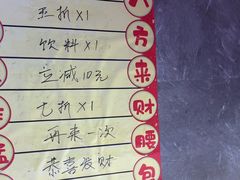 五折X1
饮料X1
立减10元
七折X1
再来一次
恭喜发财
八
方
来
财
腰
包